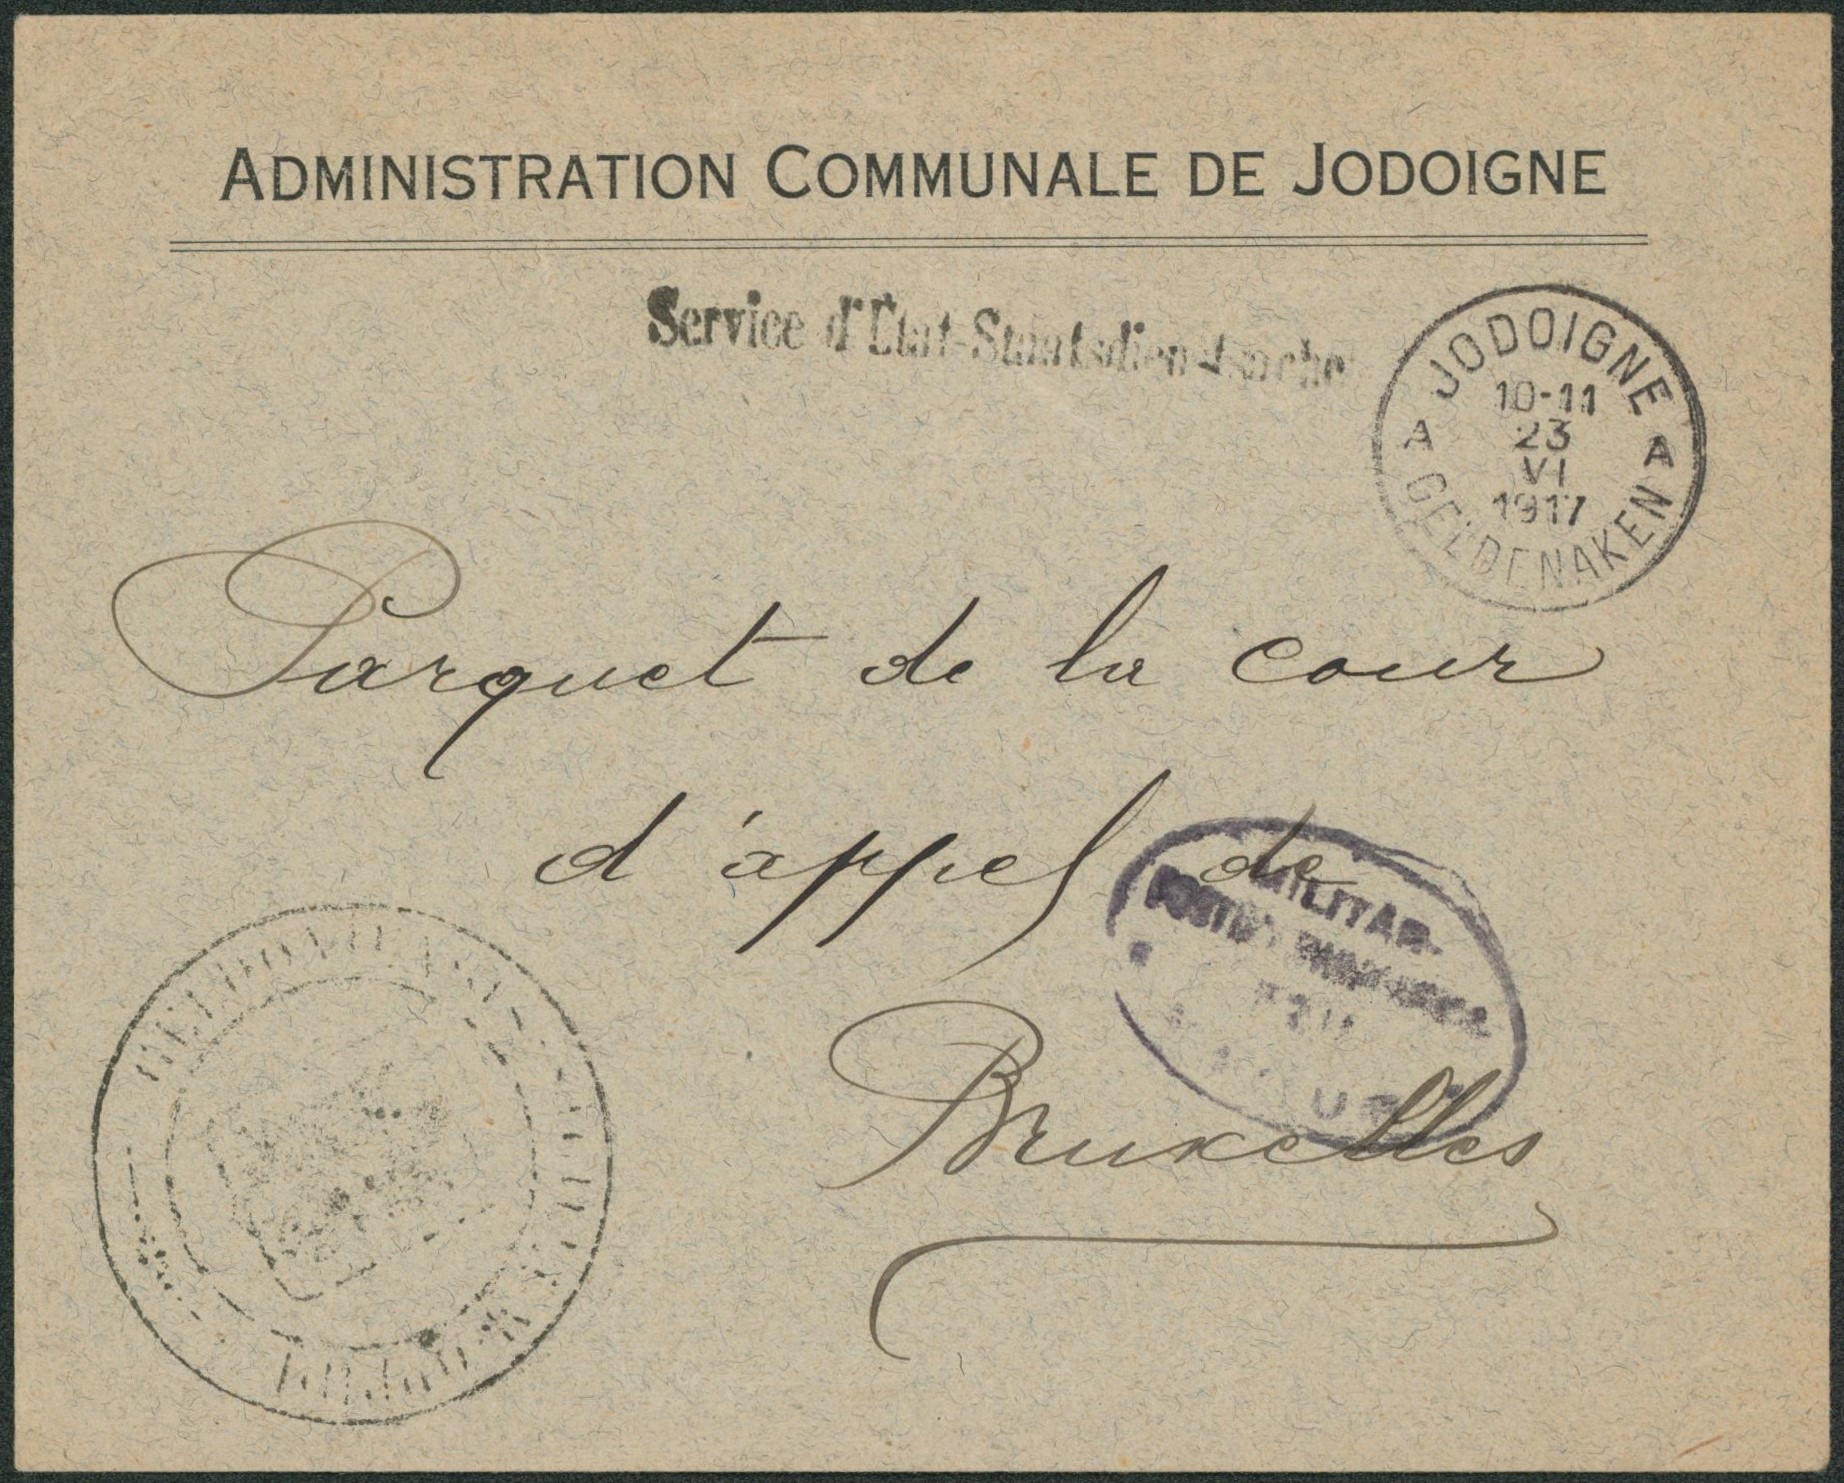 ADMINISTRATION COMMUNALE DE JODOIGNE
Service d'Etat-Staatsdienstsache
JODOIGNE
10-11
23
VI
1917
A A
GELDENAKEN
Parquet de la cour
d'appel de
Bruxelles
MILITÄR-